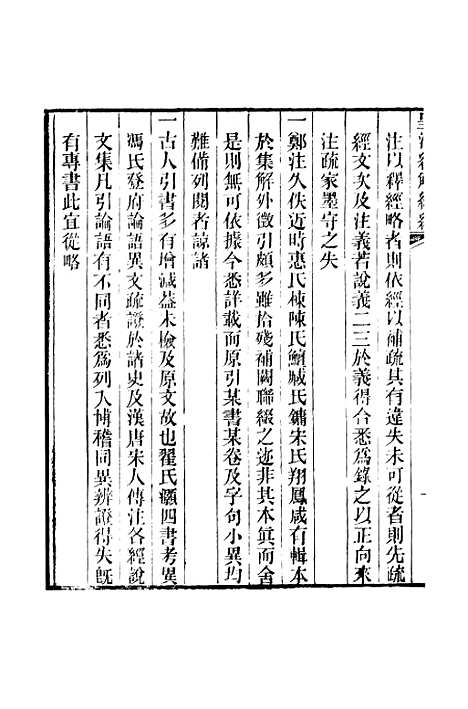 皇清經解續編
注以釋經略者則依經以補疏其有違失未可從者則先疏
經文次及注義若說義二三於義得合悉爲錄之以正向來
注疏家墨守之失
一鄭注久佚近時惠氏棟陳氏鱣臧氏鏞宋氏翔鳳咸有輯本
於集解外徵引頗多雖拾殘補闕聯綴之迹非其本眞而舍
是則無可依據今悉詳載而原引某書某卷及字句小異均
難備列閱者諒諸
一古人引書多有增減葢未檢及原文故也翟氏灝四書考異
馮氏登府論語異文疏證於諸史及漢唐宋人傳注各經說
文集凡引論語有不同者悉爲列入博稽同異辨證得失旣
有專書此宜從略